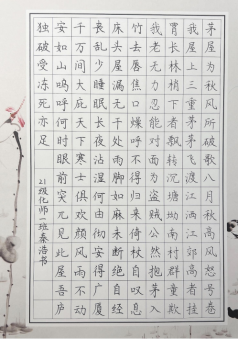 茅屋为秋风所破歌八月秋高风怒号卷
我屋上三重茅茅飞渡江洒江郊高者挂
罥长林梢下者飘转沉塘坳南村群童欺
我老无力忍能对面为盗贼公然抱茅入
竹去唇焦口燥呼不得归来倚杖自叹息
床头屋漏无干处雨脚如麻未断绝自经
丧乱少睡眠长夜沾湿何由彻安得广厦
千万间大庇天下寒士俱欢颜风雨不动
安如山呜呼何时眼前突兀见此屋吾庐
独破受冻死亦足
21级化师一班秦浩书